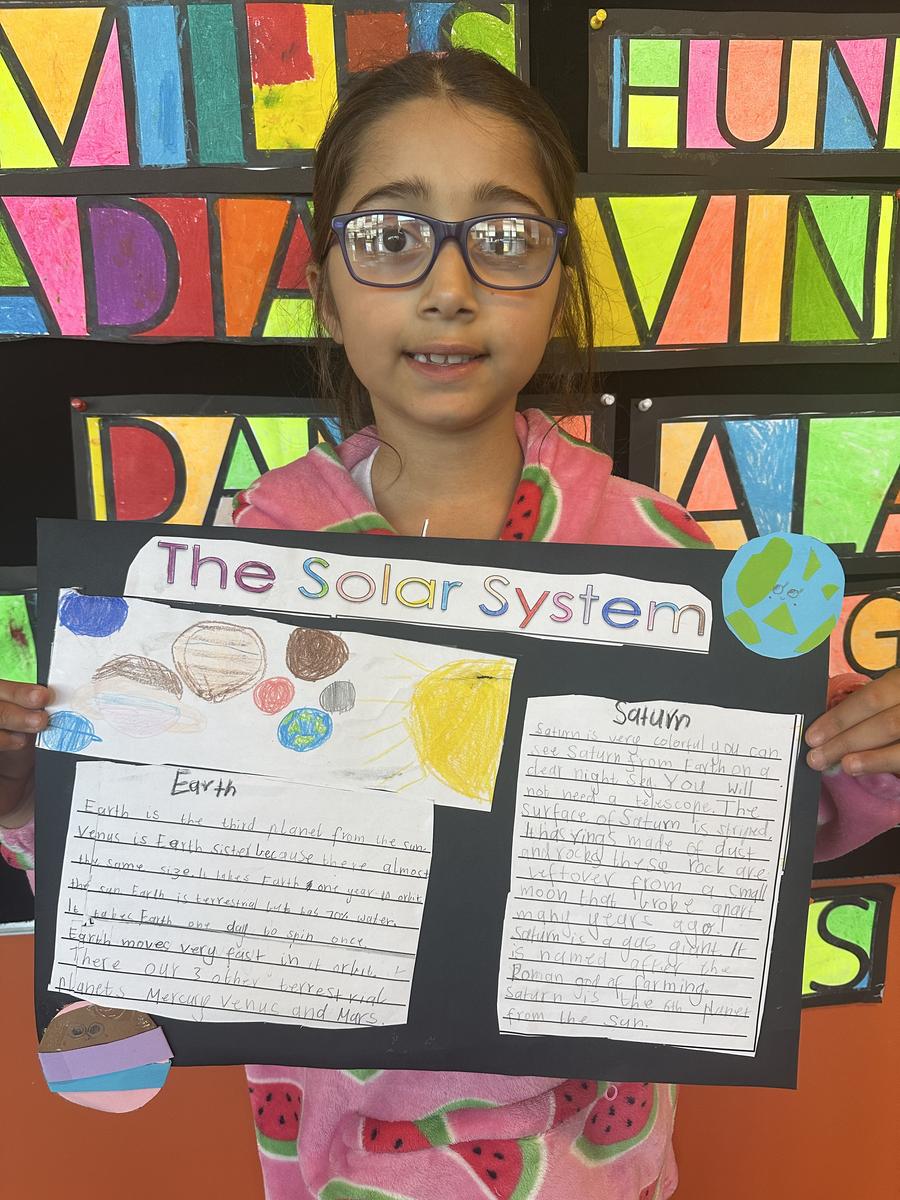 MILES
HUN
ADIA
VIN
DAN
ALA
G
S
The Solar System
Earth
Earth is the third planet from the sun.
Venus is Earth sister because there almost
the same size. It takes Earth one year to orbit
the sun Earth is terrestrial but has 70% water.
It takes Earth one day to spin once.
Earth moves very fast in it orbit.
There our 3 other terrestrial
planets Mercury Venus and Mars.
Saturn
Saturn is very colorful you can
see Saturn from Earth on a
clear night sky You will
not need a telescope. The
surface of Saturn is striped.
It has rings made of dust
and rocks these rock are
leftover from a small
moon that broke apart
many years ago.
Saturn is a gas giant It
is named after the
Roman god of farming.
Saturn is the 6th planet
from the sun.